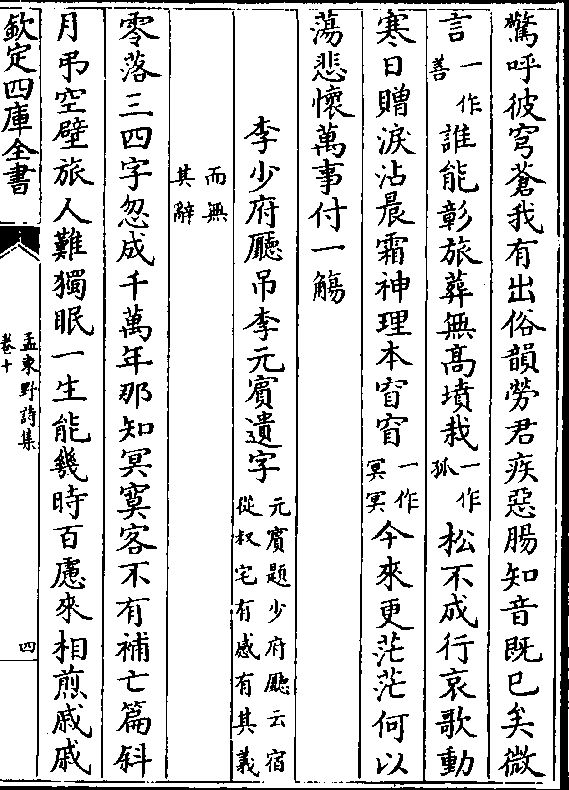 驚呼彼穹蒼我有出俗韻勞君疾惡腸知音既已矣微
言一作善誰能彰旅葬無高墳栽一作孤松不成行哀歌動
寒日贈淚沾晨霜神理本窅窅一作冥冥今來更茫茫何以
蕩悲懷萬事付一觴
李少府廳吊李元賓遺字元賓題少府廳云宿從叔宅有感有其義
而無其辭
零落三四字忽成千萬年那知冥寞客不有補亡篇斜
月弔空壁旅人難獨眠一生能幾時百慮來相煎戚戚
欽定四庫全書
孟東野詩集
卷十
四